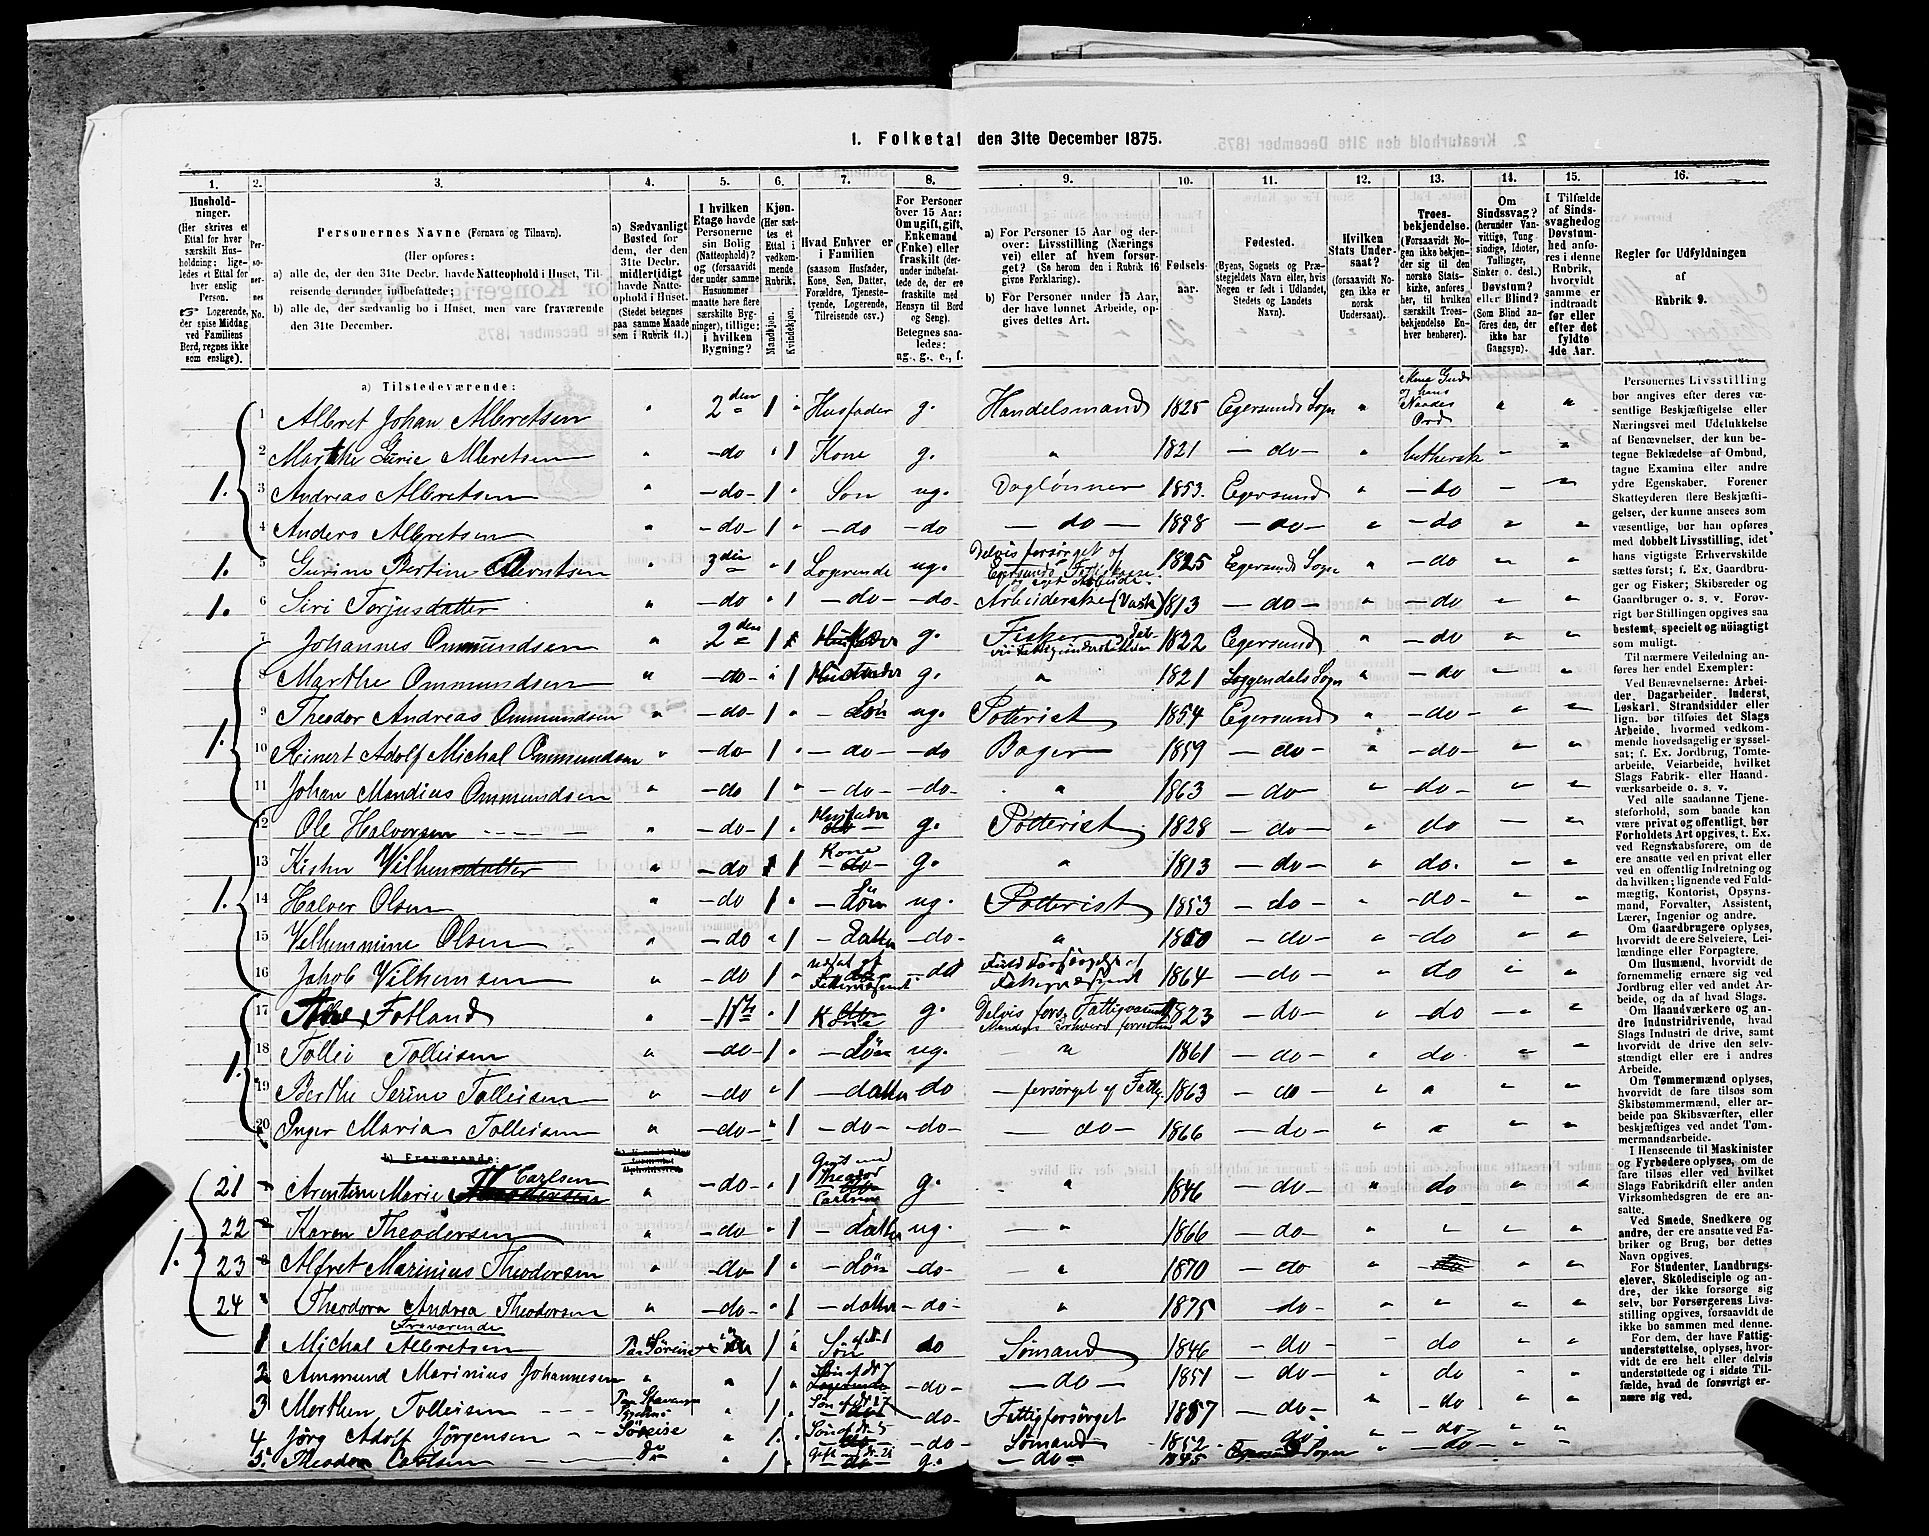 1. Folketal den 31te December 1875.
1. 2. 3. 4. 5. 6. 7. 8. 9. 10. 11. 12. 13. 14. 15. 16.
Husholdninger. (Her skrives et Ettal for hver særskilt Husholdning; ligeledes et Ettal for hver enslig Person. ☞ Logerende, der spise Middag ved Familiens Bord, regnes ikke som enslige).
Personernes No.
Personernes Navne (Fornavn og Tilnavn).
(Her opføres:
a) alle de, der den 31te Decbr. havde Natteophold i Huset, Tilreisende derunder indbefattede;
b) alle de, der sædvanlig bo i Huset, men vare fraværende den 31te December.
a) Sædvanligt Bosted for dem, der den 31te Decbr. midlertidigt havde Natteophold i Huset. (Stedet betegnes paa samme Maade som i Rubrik 11.)
I hvilken Etage havde Personerne sin Bolig (Natteophold)? og (forsaavidt der under samme Husnummer maatte høre flere særskilte Bygninger), tillige: i hvilken Bygning?
Kjøn. (Her sættes et Ettal i vedkommende Rubrik. Mandkjøn. Kvindekjøn.
Hvad Enhver er i Familien (saasom Husfader, Kone, Søn, Datter, Forældre, Tjenestetyende, Logerende, Tilreisende osv.)
For Personer over 15 Aar: Om ugift, gift, Enkemand (Enke) eller fraskilt (derunder indbefattede de, der ere fraskilte med Hensyn til Bord og Seng). Betegnes saaledes: ug., g., e., f.
a) For Personer 15 Aar og derover: Livsstilling (Næringsvei) eller af hvem forsørget? (Se herom den i Rubrik 16 givne Forklaring).
b) For Personer under 15 Aar, der have lønnet Arbeide, opgives dettes Art.
Fødselsaar.
Fødested. (Byens, Sognets og Præstegjeldets Navn, eller, hvis Nogen er født i Udlandet, Stedets og Landets Navn).
Hvilken Stats Undersaat? (forsaavidt Nogen ikke er norsk Undersaat).
Troesbekjendelse. (Forsaavidt Nogen ikke bekjender sig til den norske Statskirke, anføres her, til hvilken særskilt Troesbekjendelse Enhver henhører).
Om Sindssvag? (herunder Vanvittige, Tungsindige, Idioter, Tullinger, Sinker o. desl.) Døvstum? eller Blind? (Som Blind anføres den, der ikke har Gangsyn).
I Tilfælde af Sindssvaghed og Døvstumhed anføres i denne Rubrik, hvorvidt samme er indtraadt før eller efter det fyldte 4de Aar.
Regler for Udfyldningen af Rubrik 9.
a) Tilstedeværende:
1. 1 Albret Johan Albretsen 2den 1 Husfader g. Handelsmand 1825 Egersunds Sogn
2 Marthe Gurie Albretsen do 1 Kone g. 1821 do luthersk
3 Andreas Albretsen do 1 Søn ug. Dagløner 1853 Egersund do
4 Anders Albretsen do 1 do do do do do
1. 5 Gurine Bertine 3die 1 Logerende ug. Delvis forsørget af Egersunds 1825 Egersunds Sogn do
1. 6 Siri Torjusdatter do 1 do do Arbeiderske (Vask) 1813 do do
1. 7 Johannes Ommundsen 2den 1 g. Fisker 1822 Egersund do
8 Marthe Ommundsen do 1 g. 1821 Soggendals Sogn do
9 Theodor Andreas Ommundsen do 1 Søn ug. Potterist 1854 Egersund do
10 Reinert Adolf Michal Ommundsen do 1 do do Bager 1859 do do
11 Johan Mandius Ommundsen do 1 do do 1863 do do
1. 12 Ole Halvorsen do 1 Husfader g. Potterist 1828 do do
13 Vilhemsdatter do 1 Kone g. 1813 do do
14 Halver Olsen do 1 Søn ug. Potterist 1853 do do
15 Vilhemmine Olsen do 1 datter do 1850 do do
16 Jakob Vilhemsen do 1 do 1864 do do
1. 17 Fotland 1ste 1 Kone g. Delvis fors. Fattigvæsnet 1823 do do
18 Tollei Tolleisen do 1 Søn ug. 1861 do do
19 Berthe Serine Tolleisen do 1 datter do forsørget af Fattig. 1863 do
20 Inger Maria Tolleisen do 1 do do do 1866 do
b) Fraværende:
1. 21 Arentine Marie Carlsen do 1 Gift med Theodor Carlsen g. 1846 do do
22 Karen Theodorsen do 1 datter ug. 1866 do
23 Alfret Marinius Theodorsen do 1 Søn do 1870 do
24 Theodora Andrea Theodorsen do 1 datter do 1875 do
Fraværende
1 Michal Albretsen Paa Søreise 1 Søn af No 1 do Sømand 1846 do do
2 Ammund Marinius Johannesen 1 Søn af No 7 do do 1851 do do
3 Morthen Tolleisen 1 Søn af No 17 do Fattigforsørget 1857 do do
4 Jørg Adolf Jørgensen Søreise 1 Søn af No 5 do Sømand 1852 do do
5. Theodor Carlsen Do 1 Gift m No 21 g. do 1845 Egersunds Sogn do
Personernes Livsstilling bør angives efter deres væsentlige Beskjæftigelse eller Næringsvei med Udelukkelse af Benævnelser, der kun betegne Beklædelse af Ombud, tagne Examina eller andre ydre Egenskaber. Forener Skatteyderen flere Beskjæftigelser, der kunne ansees som væsentlige, bør han opføres med dobbelt Livsstilling, idet hans vigtigste Erhvervskilde sættes først; f. Ex. Gaardbruger og Fisker; Skibsreder og Gaardbruger o. s. v. Forøvrigt bør Stillingen opgives saa bestemt, specielt og nøiagtigt som muligt.
Til nærmere Veiledning anføres her endel Exempler:
Ved Benævnelserne: Arbeider, Dagarbeider, Inderst, Løskarl, Strandsidder eller lign. bør tilføies det Slags Arbeide, hvormed vedkommende hovedsagelig er sysselsat; f. Ex. Jordbrug, Tomtearbeide, Veiarbeide, hvilket Slags Fabrik- eller Haandværksarbeide o. s. v.
Ved alle saadanne Tjenesteforhold, som baade kan være privat og offentligt, bør Forholdets Art opgives, t. Ex. ved Regnskabsførere, om de ere ansatte ved en privat eller ved en offentlig Indretning og da hvilken; lignende ved Fuldmægtig, Kontorist, Opsynsmand, Forvalter, Assistent, Lærer, Ingeniør og andre.
Om Gaardbrugere oplyses, hvorvidt de ere Selveiere, Leilændinge eller Forpagtere.
Om Husmænd, hvorvidt de fornemmelig ernære sig ved Jordbrug eller ved andet Arbeide, og da af hvad Slags.
Om Haandværkere og andre Industridrivende, hvad Slags Industri de drive, samt hvorvidt de drive den selvstændigt eller ere i andres Arbeide.
Om Tømmermænd oplyses, hvorvidt de fare tilsøs som Skibstømmermænd, eller arbeide paa Skibsværfter, eller beskjæftiges ved andet Tømmermandsarbeide.
I Henseende til Maskinister og Fyrbødere oplyses, om de fare tilsøs eller ved hvilket Slags Fabrikdrift eller anden Virksomhedsgren de ere ansatte.
Ved Smede, Snedkere og andre, der ere ansatte ved Fabriker og Brug, bør dettes Navn opgives.
For Studenter, Landbrugselever, Skoledisciple og andre, der ikke forsørge sig selv, bør Forsørgerens Livsstilling opgives, forsaavidt de ikke bo sammen med denne.
For dem, der have Fattigunderstøttelse, oplyses, hvorvidt de ere helt eller delvis understøttede og i sidste Tilfælde, hvad de forøvrigt ernære sig ved.